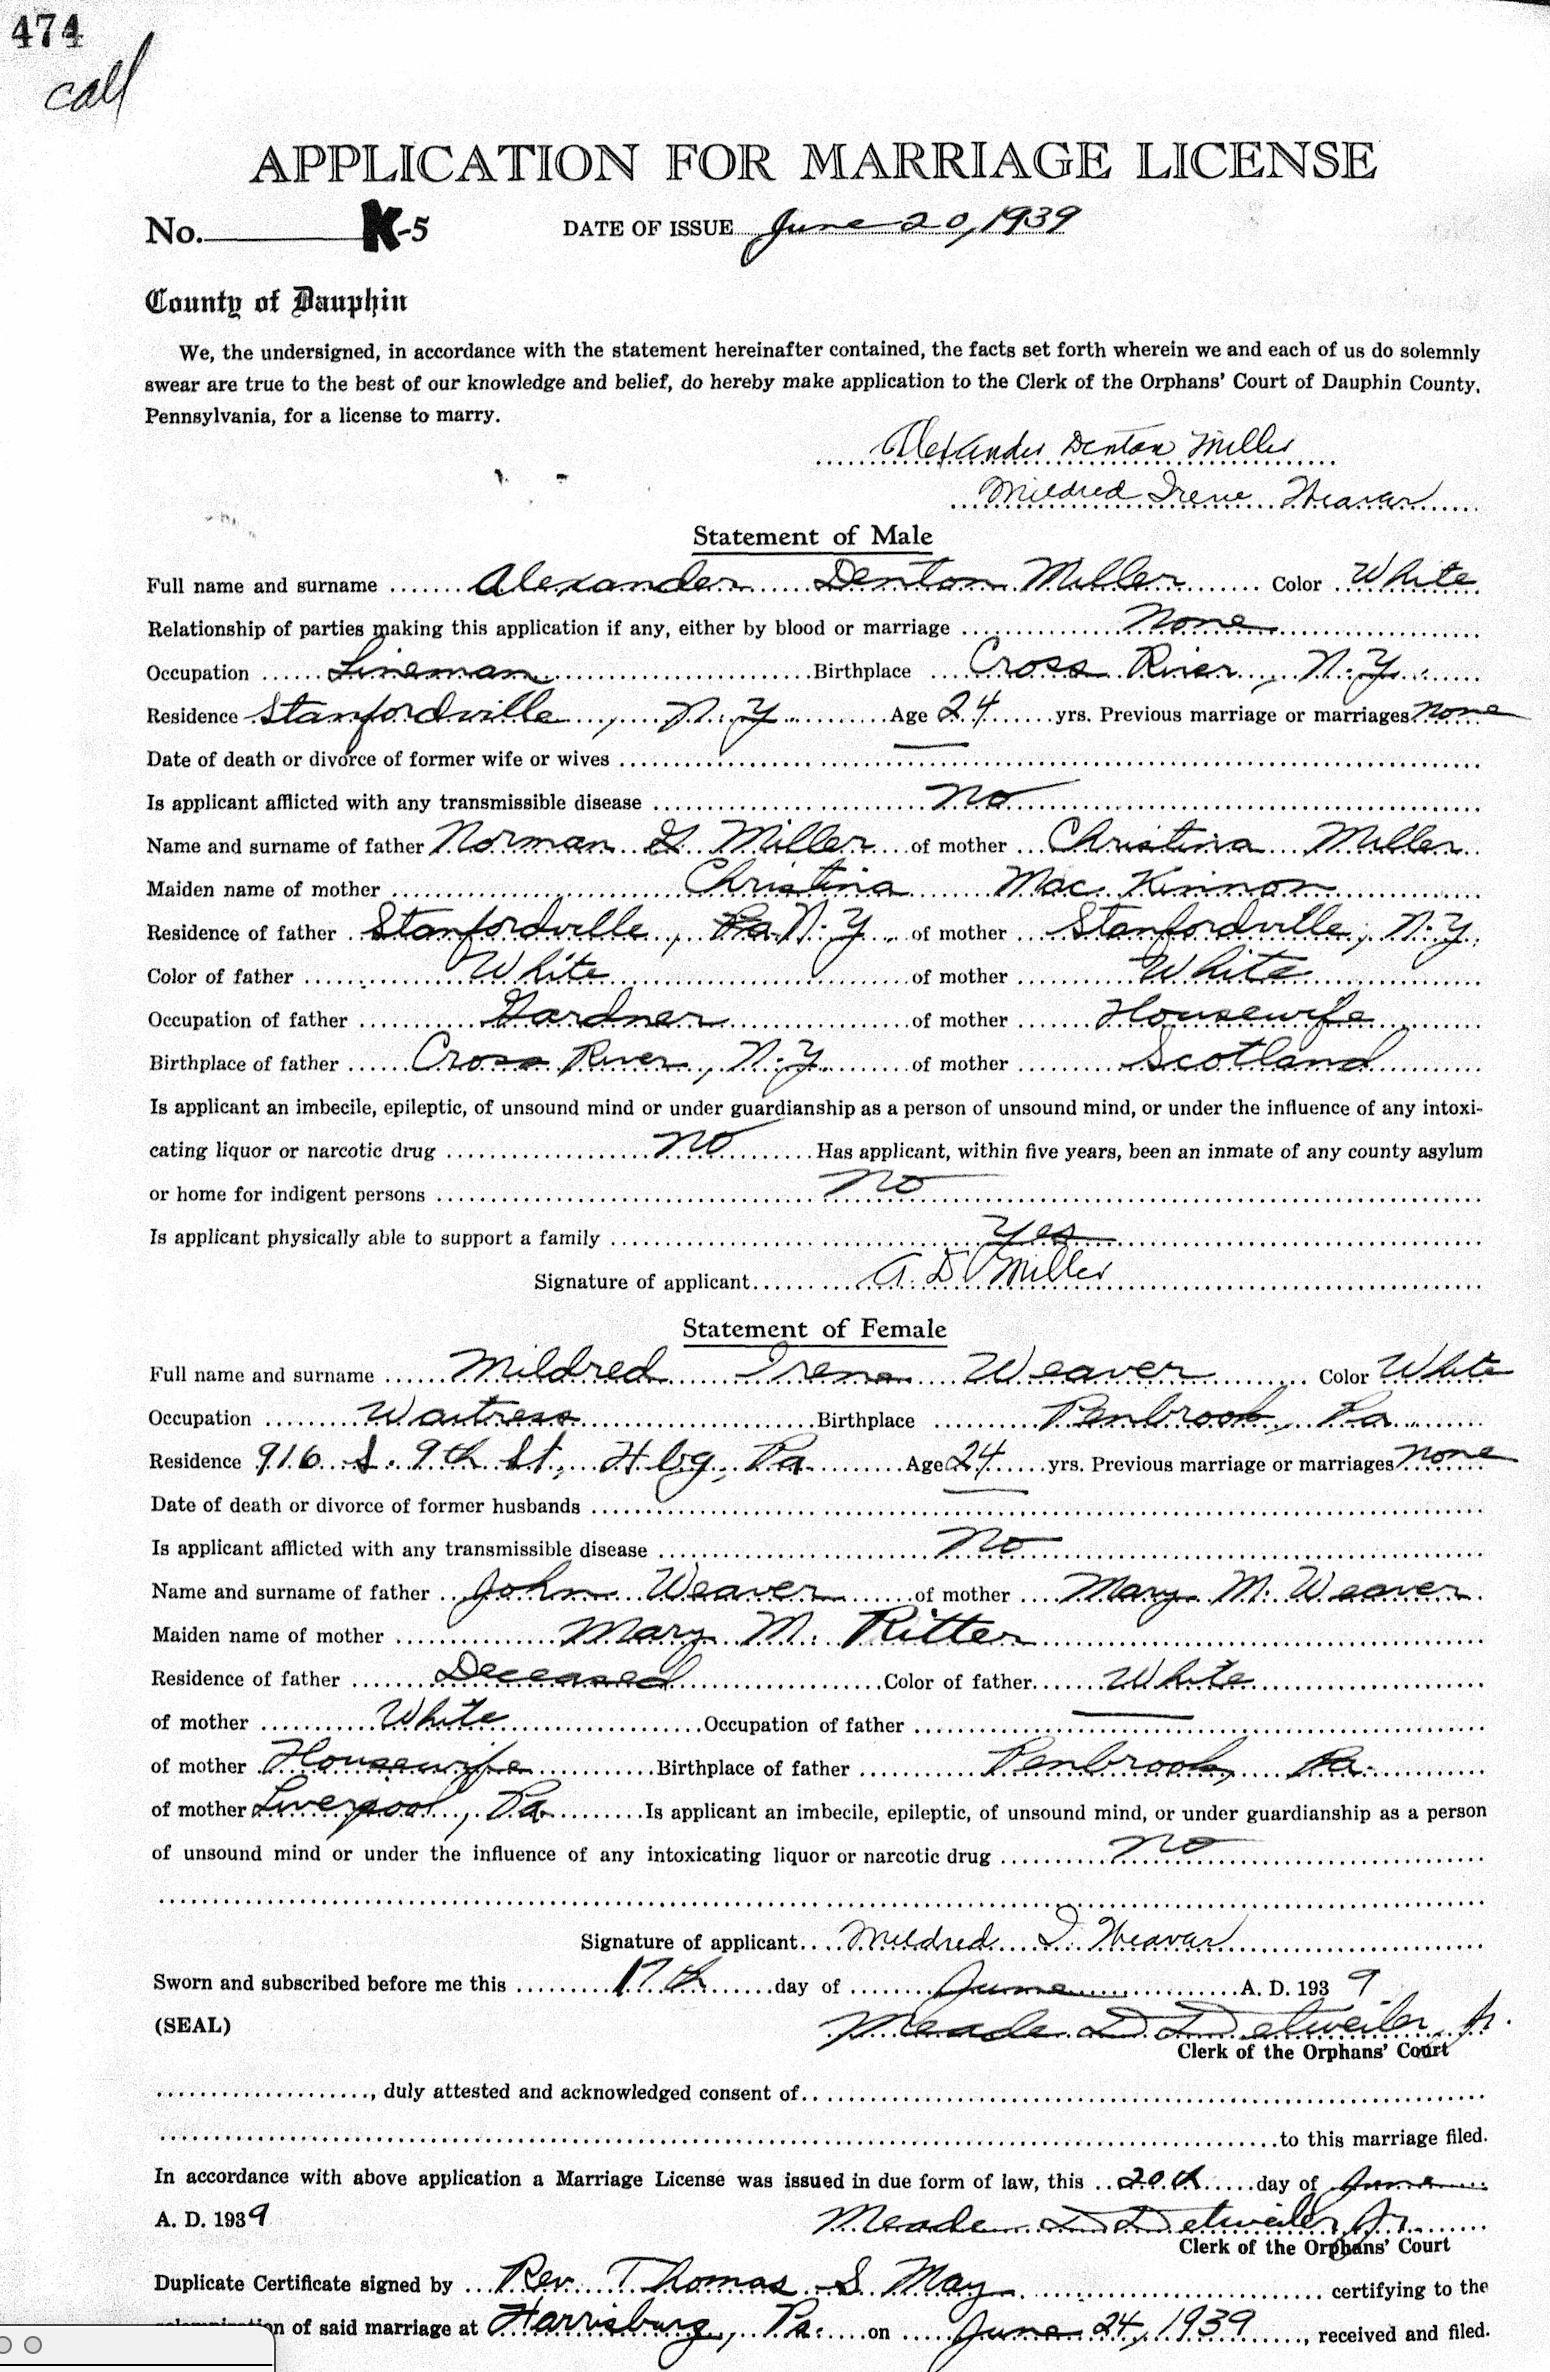 474
call
APPLICATION FOR MARRIAGE LICENSE
No. K-5 DATE OF ISSUE June 20, 1939
County of Dauphin
We, the undersigned, in accordance with the statement hereinafter contained, the facts set forth wherein we and each of us do solemnly
swear are true to the best of our knowledge and belief, do hereby make application to the Clerk of the Orphans' Court of Dauphin County,
Pennsylvania, for a license to marry.
Alexander Denton Miller
Mildred Irene Weaver
Statement of Male
Full name and surname Alexander Denton Miller Color White
Relationship of parties making this application if any, either by blood or marriage None
Occupation Lineman Birthplace Cross River, N.Y.
Residence Stanfordville, N.Y. Age 24 yrs. Previous marriage or marriages None
Date of death or divorce of former wife or wives
Is applicant afflicted with any transmissible disease No
Name and surname of father Norman G. Miller of mother Christina Miller
Maiden name of mother Christina Mac Kinnon
Residence of father Stanfordville, Pa N.Y. of mother Stanfordville, N.Y.
Color of father White of mother White
Occupation of father Gardner of mother Housewife
Birthplace of father Cross River, N.Y. of mother Scotland
Is applicant an imbecile, epileptic, of unsound mind or under guardianship as a person of unsound mind, or under the influence of any intoxi-
cating liquor or narcotic drug No Has applicant, within five years, been an inmate of any county asylum
or home for indigent persons No
Is applicant physically able to support a family Yes
Signature of applicant A. D. Miller
Statement of Female
Full name and surname Mildred Irene Weaver Color White
Occupation Waitress Birthplace Penbrook, Pa.
Residence 916 S. 9th St., Hbg, Pa Age 24 yrs. Previous marriage or marriages None
Date of death or divorce of former husbands
Is applicant afflicted with any transmissible disease No
Name and surname of father John Weaver of mother Mary M. Weaver
Maiden name of mother Mary M. Ritter
Residence of father Deceased Color of father White
of mother White Occupation of father
of mother Housewife Birthplace of father Penbrook, Pa.
of mother Liverpool, Pa. Is applicant an imbecile, epileptic, of unsound mind, or under guardianship as a person
of unsound mind or under the influence of any intoxicating liquor or narcotic drug No
Signature of applicant Mildred I. Weaver
Sworn and subscribed before me this 17th day of June A. D. 1939
(SEAL) Meade D Detweiler, Jr.
Clerk of the Orphans' Court
, duly attested and acknowledged consent of
to this marriage filed.
In accordance with above application a Marriage License was issued in due form of law, this 20th day of June
A. D. 1939 Meade D Detweiler, Jr.
Clerk of the Orphans' Court
Duplicate Certificate signed by Rev. Thomas S. May certifying to the
of said marriage at Harrisburg, Pa. on June 24, 1939, received and filed.